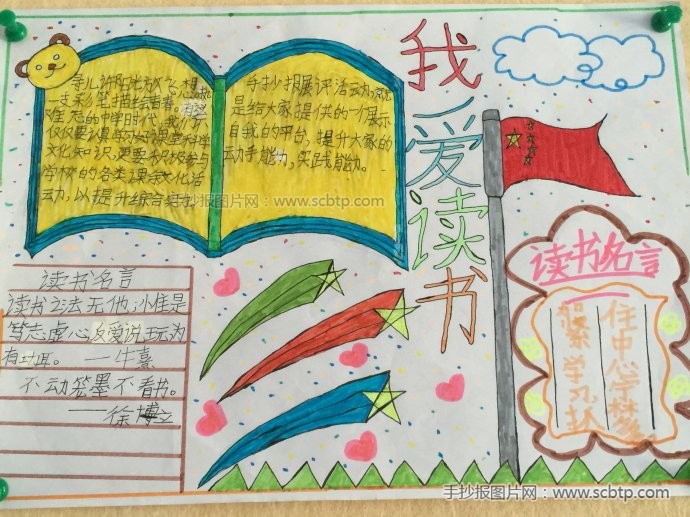 我爱读书
寻几许阳光放飞梦想,
一支彩笔描绘青春。在这
难忘的中学时代,我们不
仅仅要认真学习好课堂科学
文化知识,更要积极参与
学校的各类课余文化活
动,以提升综合
手抄报展评活动,就
是给大家提供的一个展示
自我的平台,提升大家的
动手能力,实践能力。
手抄报图片网:www.scbtp.com
读书名言
读书之法无他,惟是
笃志虚心反复说玩为
有功耳。——牛熹
不动笔墨不看书。
——徐
读书名言
住中心学
学习
手抄报图片网:www.scbtp.com